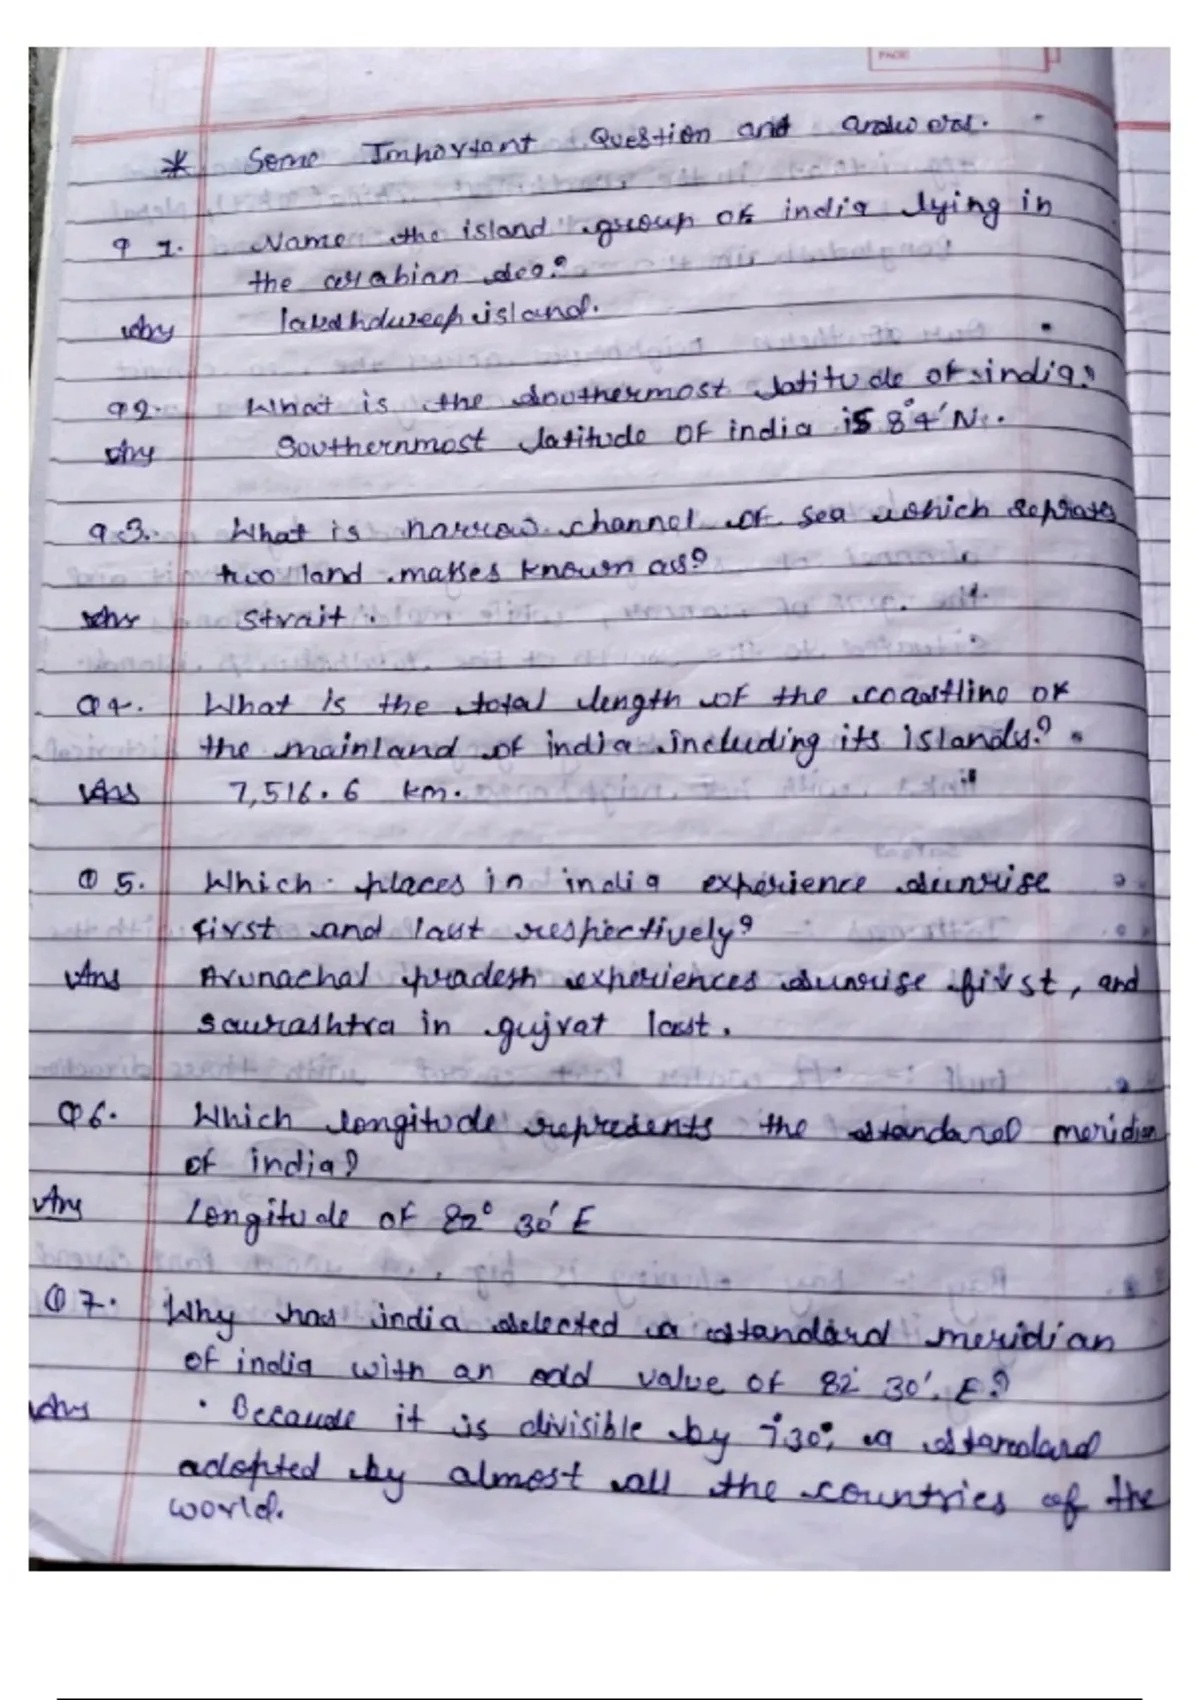 PAGE
* Some Important Question and answers.
Q 1. Name the island group of india lying in
the arabian sea?
Ans lakshdweep island.
Q2. What is the southermost latitude of india?
Ans Southernmost latitude of india is 8°4' N.
Q.3. What is narrow channel of sea which seprates
two land masses known as?
Ans Strait.
Q4. What is the total length of the coastline of
the mainland of india including its islands?
Ans 7,516.6 km.
Q5. Which places in india experience sunrise
first and last respectively?
Ans Arunachal pradesh experiences sunrise first, and
saurashtra in gujrat last.
Q6. Which longitude represents the standard meridian
of india?
Ans Longitude of 82° 30' E
Q7. Why has india selected a standard meridian
of india with an odd value of 82° 30'. E?
Ans • Because it is divisible by 7°30', a standard
adopted by almost all the countries of the
world.